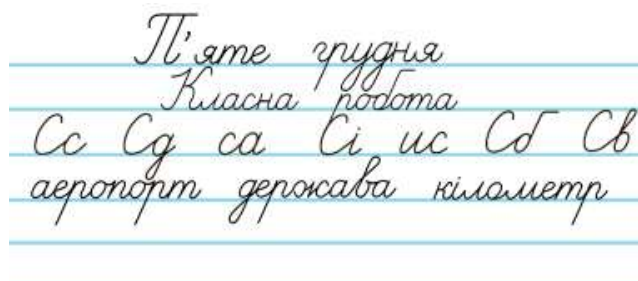 П'яте грудня
Класна робота
Сс Сд са Сі ис Сб Св
аеропорт держава кілометр